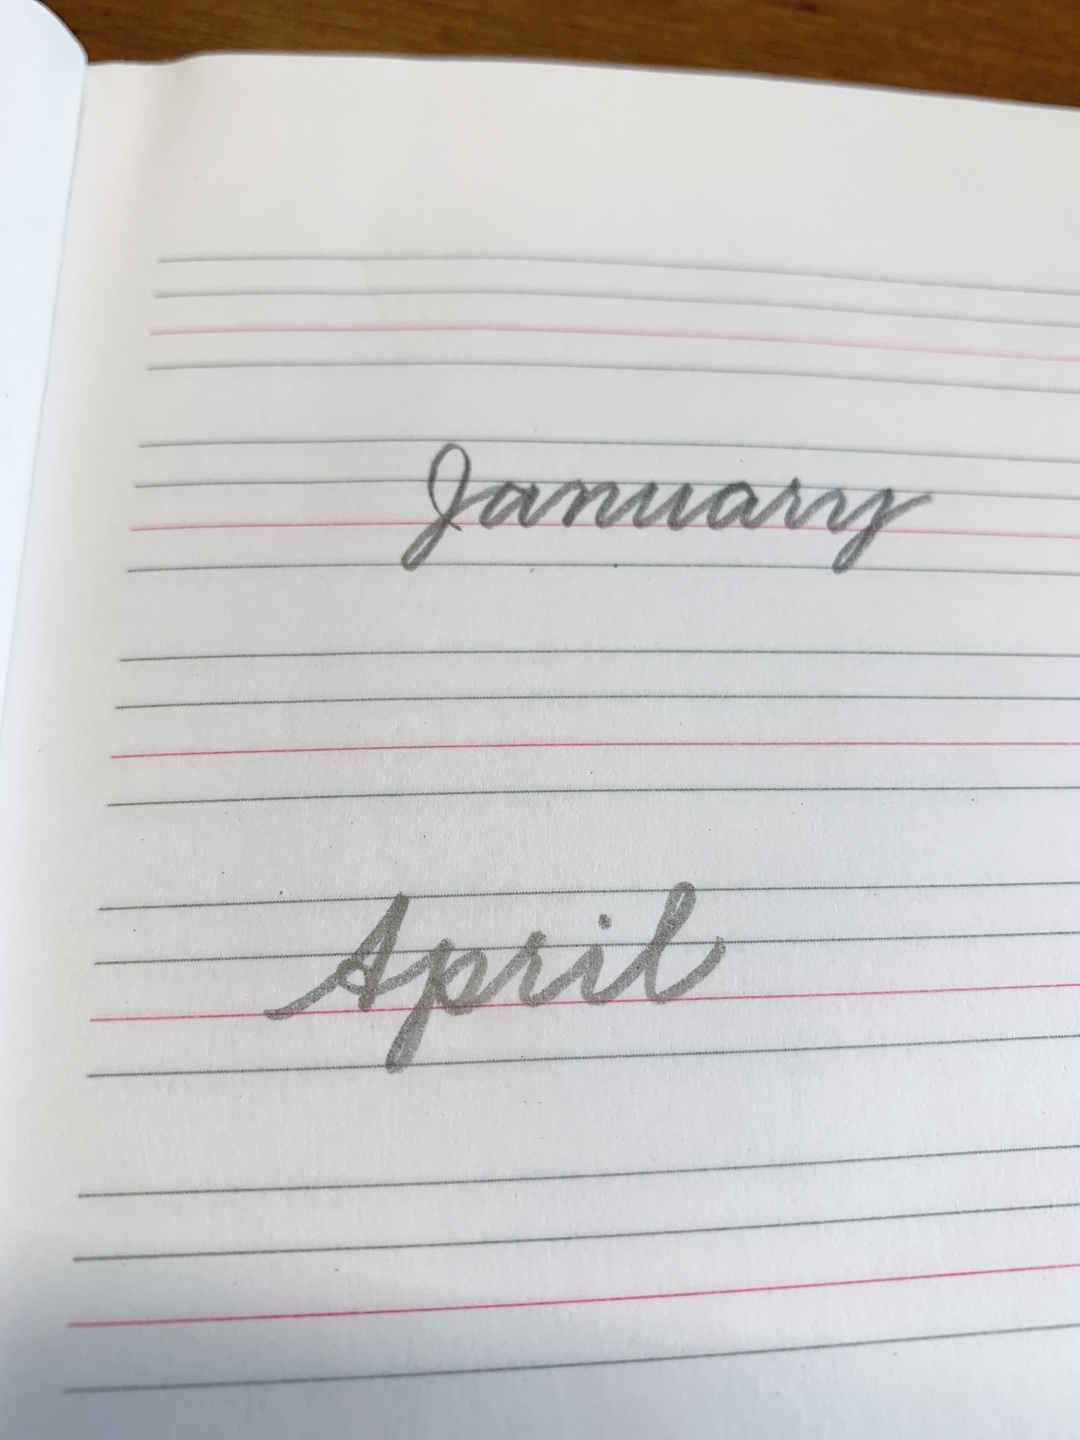 January
April